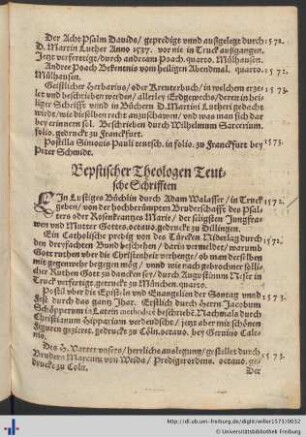 Der Acht Psalm Dauids / gepredigt vnnd außgelegt durch 1572.
D. Martin Luther Anno 1537. vor nie in Truck außgangen.
Jetzt verfertiget / durch andream Poach. quarto. Mülhausen.
Andree Poach Bekentnis vom heiligen Abendmal. quarto. 1572.
Mülhausen.
Geistlicher Herbarius / oder Kreuterbuch / in welchem erze- 1573.
let vnd beschrieben werden / allerley Erdgewechs / derer in heili-
ger Schrifft vnnd in Büchern D. Martini Lutheri gedacht
wirdt / wie dieselben recht anzuschawen / vnd was man sich dar
bey erinnern sol. Beschrieben durch Wilhelmum Sarcerium.
folio. gedruckt zu Franckfurt.
Postilla Simonis Pauli teutsch. in folio. zu Franckfurt bey 1573.
Peter Schmidt.
Bepstischer Theologen Teut-
sche Schrifften
EIn Lustiges Büchlin durch Adam Walasser / in Truck 1572.
geben / von der hochberümpten Bruderschafft des Psal-
ters oder Rosenkrantzes Marie / der seligsten Jungfra-
wen vnd Mutter Gottes. octauo. gedruckt zu Dillingen.
Ein Catholische predig von des Türcken Niderlag durch 1572.
den dreyfachten Bund beschehen / darin vermeldet / warumb
Gott ruthen vber die Christenheit verhenge / ob man derselben
mit gegenwehr begegen mög / vnnd wie nach gebrochner sollicher
Ruthen Gott zu dancken sey / durch Augustinum in
Truck verfertiget. getruckt zu München. quarto.
Postil vber die Episteln vnd Euangelien der Sontag vnnd 1573.
Fest durch das gantz Jhar. Erstlich durch Herrn Jacobum
Schöpperum in Latein beschriebē. Nachmals durch
Christianum verdeudscht / jetzt aber mit schönen
Figuren geziert. gedruckt zu Cöln. octauo. bey Geruino Cale-
nio.
Des H. Vatter vnsers / herrliche auslegung / gestellet durch 1573.
Brudern Marcum von Weida / Predigerordens. octauo. ge-
druckt zu Cöln.
Der
http://dl.ub.uni-freiburg.de/diglit/willer1573/0032
© Universitätsbibliothek Freiburg